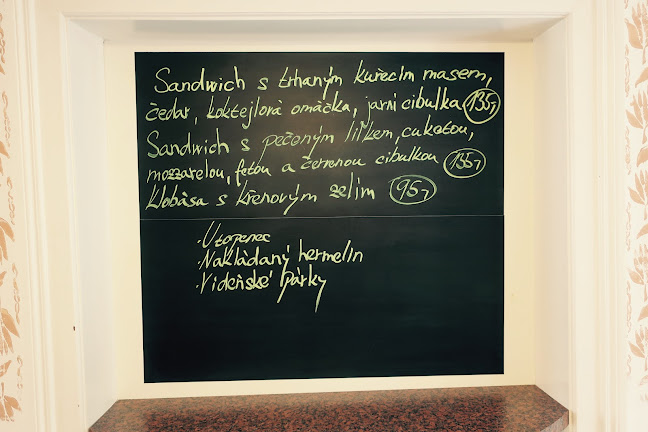 Sandwich s trhaným kuřecím masem,
čedar, koktejlová omáčka, jarní cibulka 135,-
Sandwich s pečeným lilkem, cuketou,
mozzarelou, fetou a červenou cibulkou 135,-
klobása s křenovým zelím 95,-
· Utopenec
· Nakládaný hermelín
· Vídeňské párky